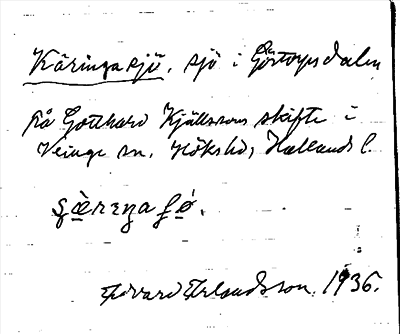 Käringasjö, sjö i Göstorpsdalen
på Gotthard Kjällssons skifte i
Veinge sn. Höks hd, Hallands l.
Edvard Erlandsson 1936.